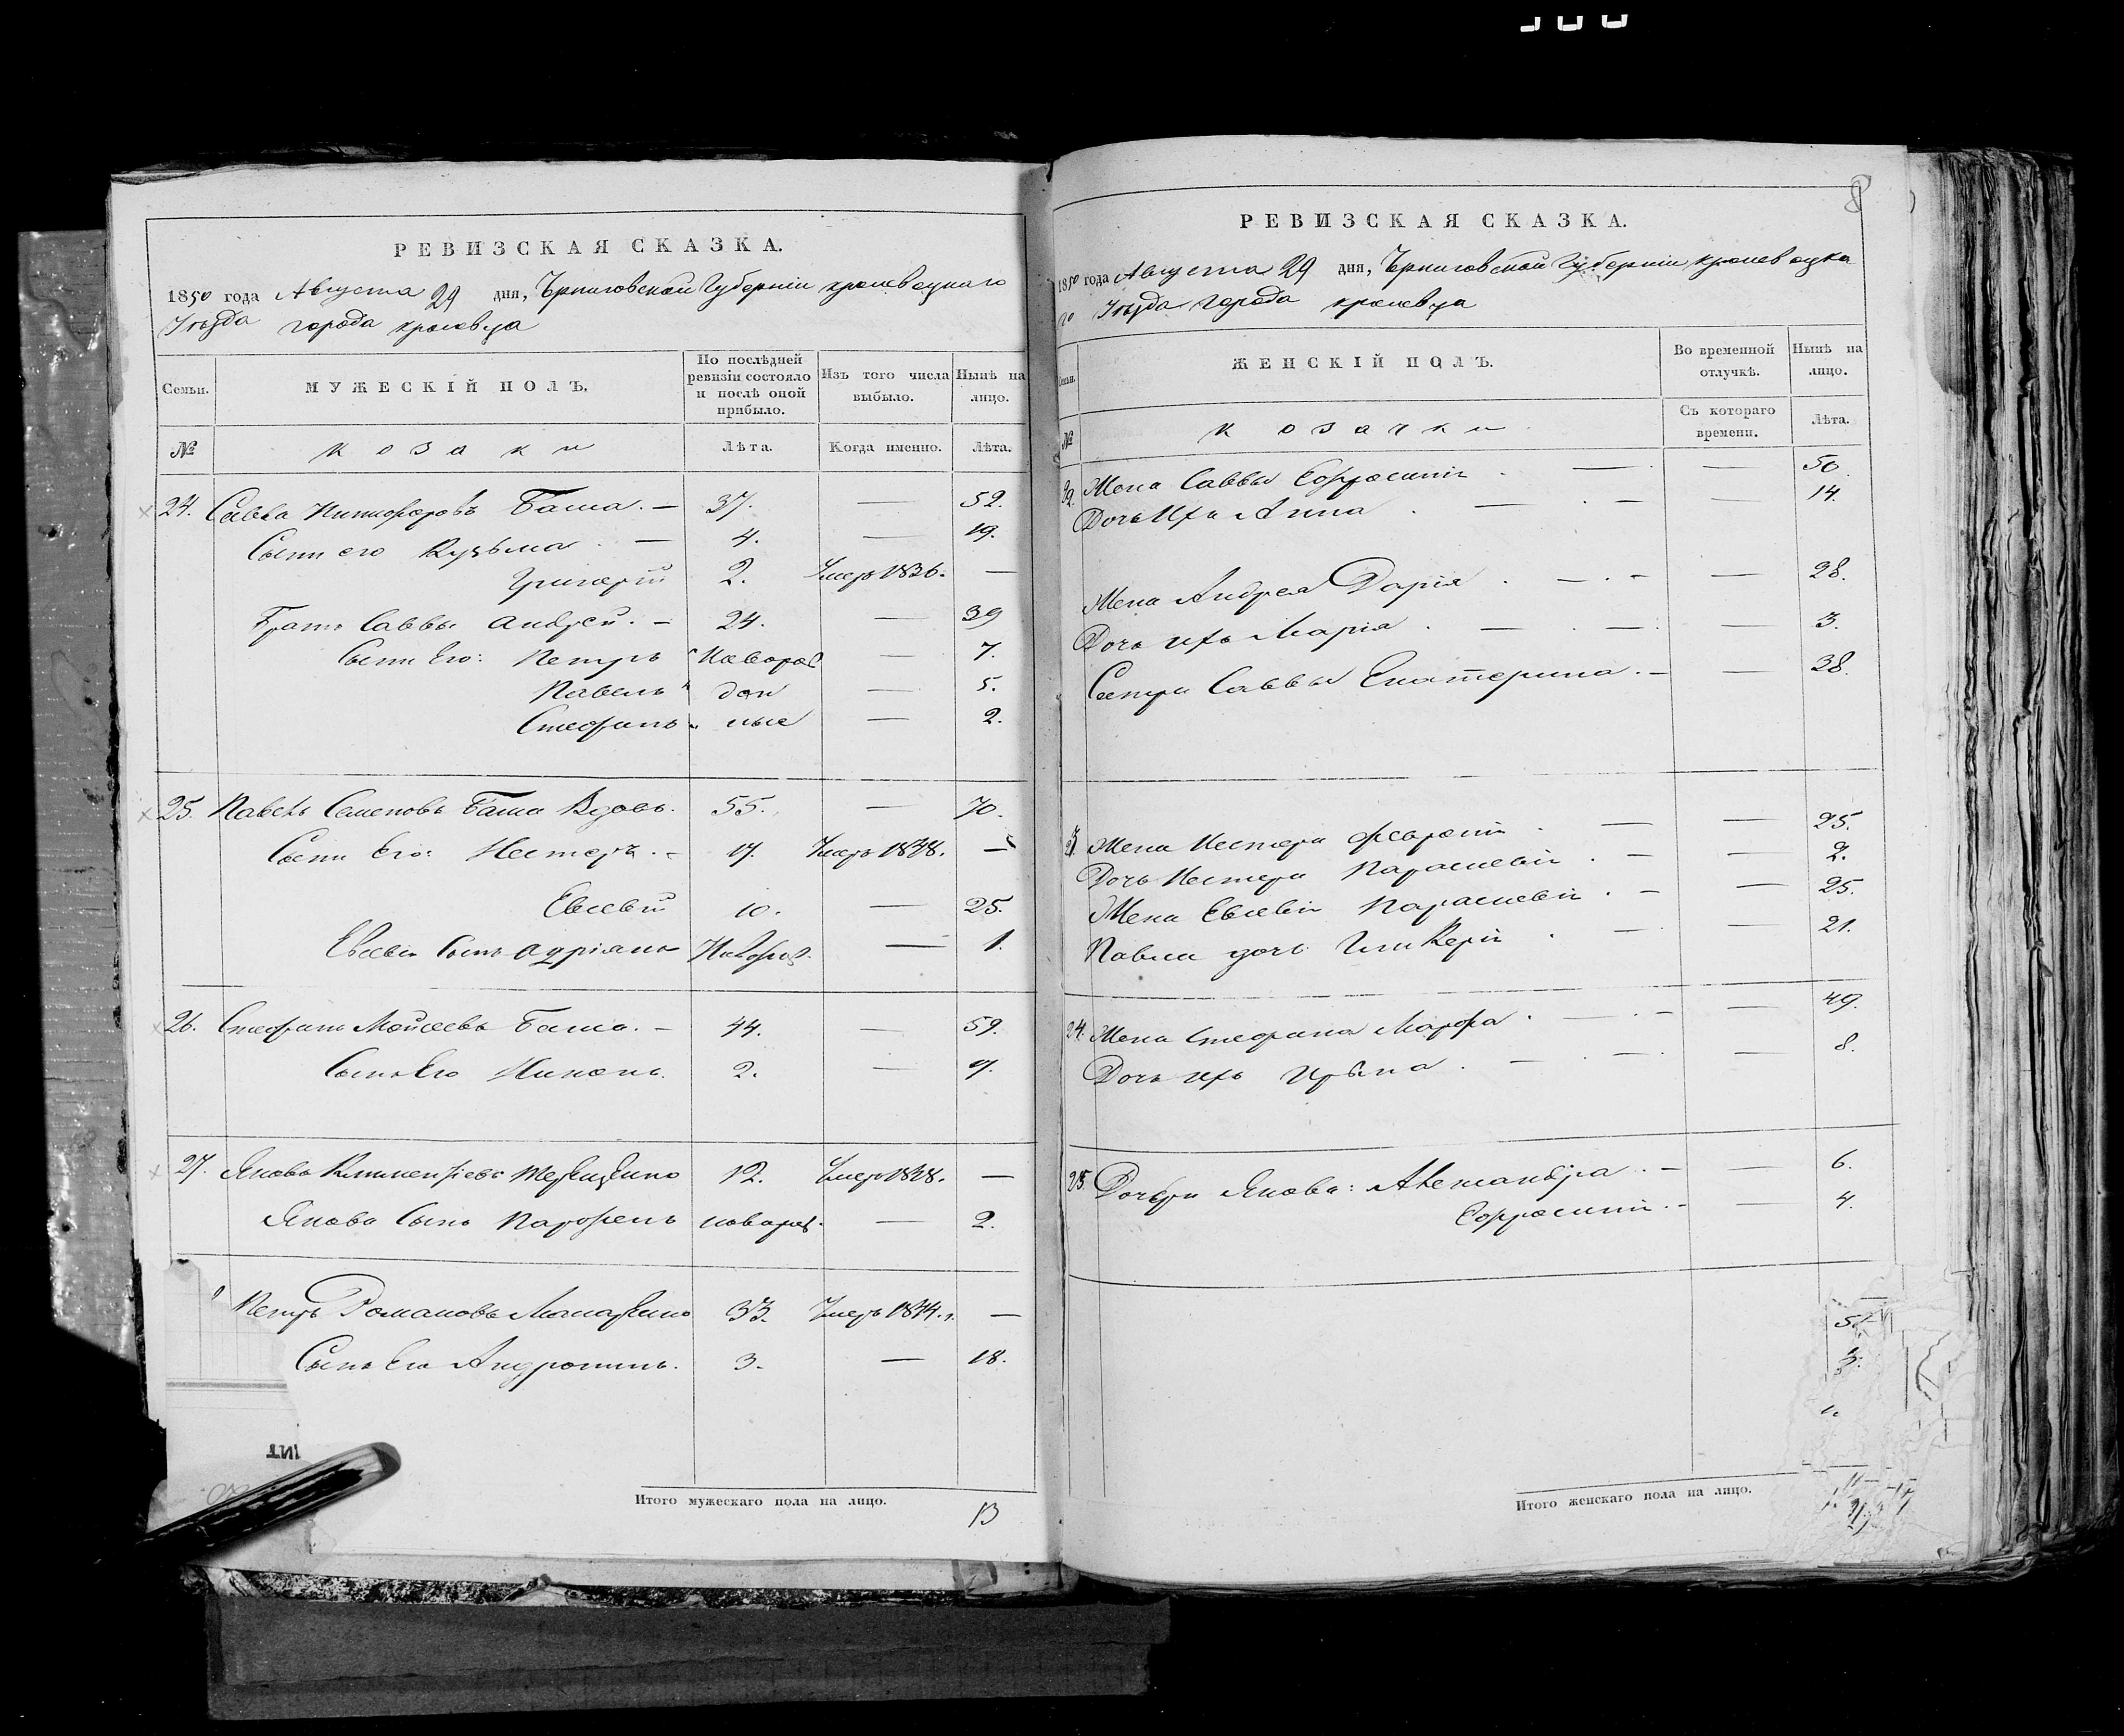 РЕВИЗСКАЯ СКАЗКА.
1850 года Августа 29 дня, Черниговской Губерніи кролевецкаго
Уезда города кролевца
Семьи. МУЖЕСКІЙ ПОЛЪ. По послѣдней ревизіи состояло и послѣ оной прибыло. Изъ того числа выбыло. Нынѣ на лицо.
№ козаки Лѣта. Когда именно. Лѣта.
24. Савва Никифоровъ Баша. — 37. — 52.
Сыни его Кузьма — 4. — 19.
Григорій 2. Умеръ 1836. —
Братъ Саввы Андрей. — 24. — 39
Сыни Его: Петръ Новорож — 7.
Павелъ ден — 5.
Стефанъ ные — 2.
25. Павелъ Семеновъ Баша Вдовъ. 55. — 70.
Сыни Его: Несторъ. — 17. Умеръ 1848. —
Евсевій 10. — 25.
Евсевія Сынъ Адріянъ Новорож. — 1.
26. Стефанъ Мойсеевъ Баша. — 44. — 59.
Сынъ Его Никонъ. 2. —
27. Яковъ Климентіевъ 12. Умеръ 1848. —
Якова Сынъ Парфенъ новорож. — 2.
Петръ Романовъ 33. Умеръ 1844. г. —
Сынъ Его Андроникъ. 3. — 18.
Итого мужескаго пола на лицо. 13
РЕВИЗСКАЯ СКАЗКА.
1850 года Августа 29 дня, Черниговской Губерніи кролевецка
го Уезда города кролевца
Семьи. ЖЕНСКІЙ ПОЛЪ. Во временной отлучкѣ. Нынѣ на лицо.
№ козачки Съ котораго времени. Лѣта.
Жена Саввы Евфросинія — — 50.
Дочь Ихъ Анна — — 14.
Жена Андрея Дарія — — 28.
Дочь ихъ Марія — — 3.
Сестра Саввы Екатерина. — — 38.
Жена Нестера — — 25.
Дочь Нестера Параскевія — — 2.
Жена Евсевія Параскевія — — 25.
Павла дочь Гликерія — 21.
24. Жена Стефана Марфа — — 49.
Дочь ихъ Ирина — — 8.
25. Дочери Якова: Александра — — 6.
Евфросинія. — — 4.
Итого женскаго пола на лицо.